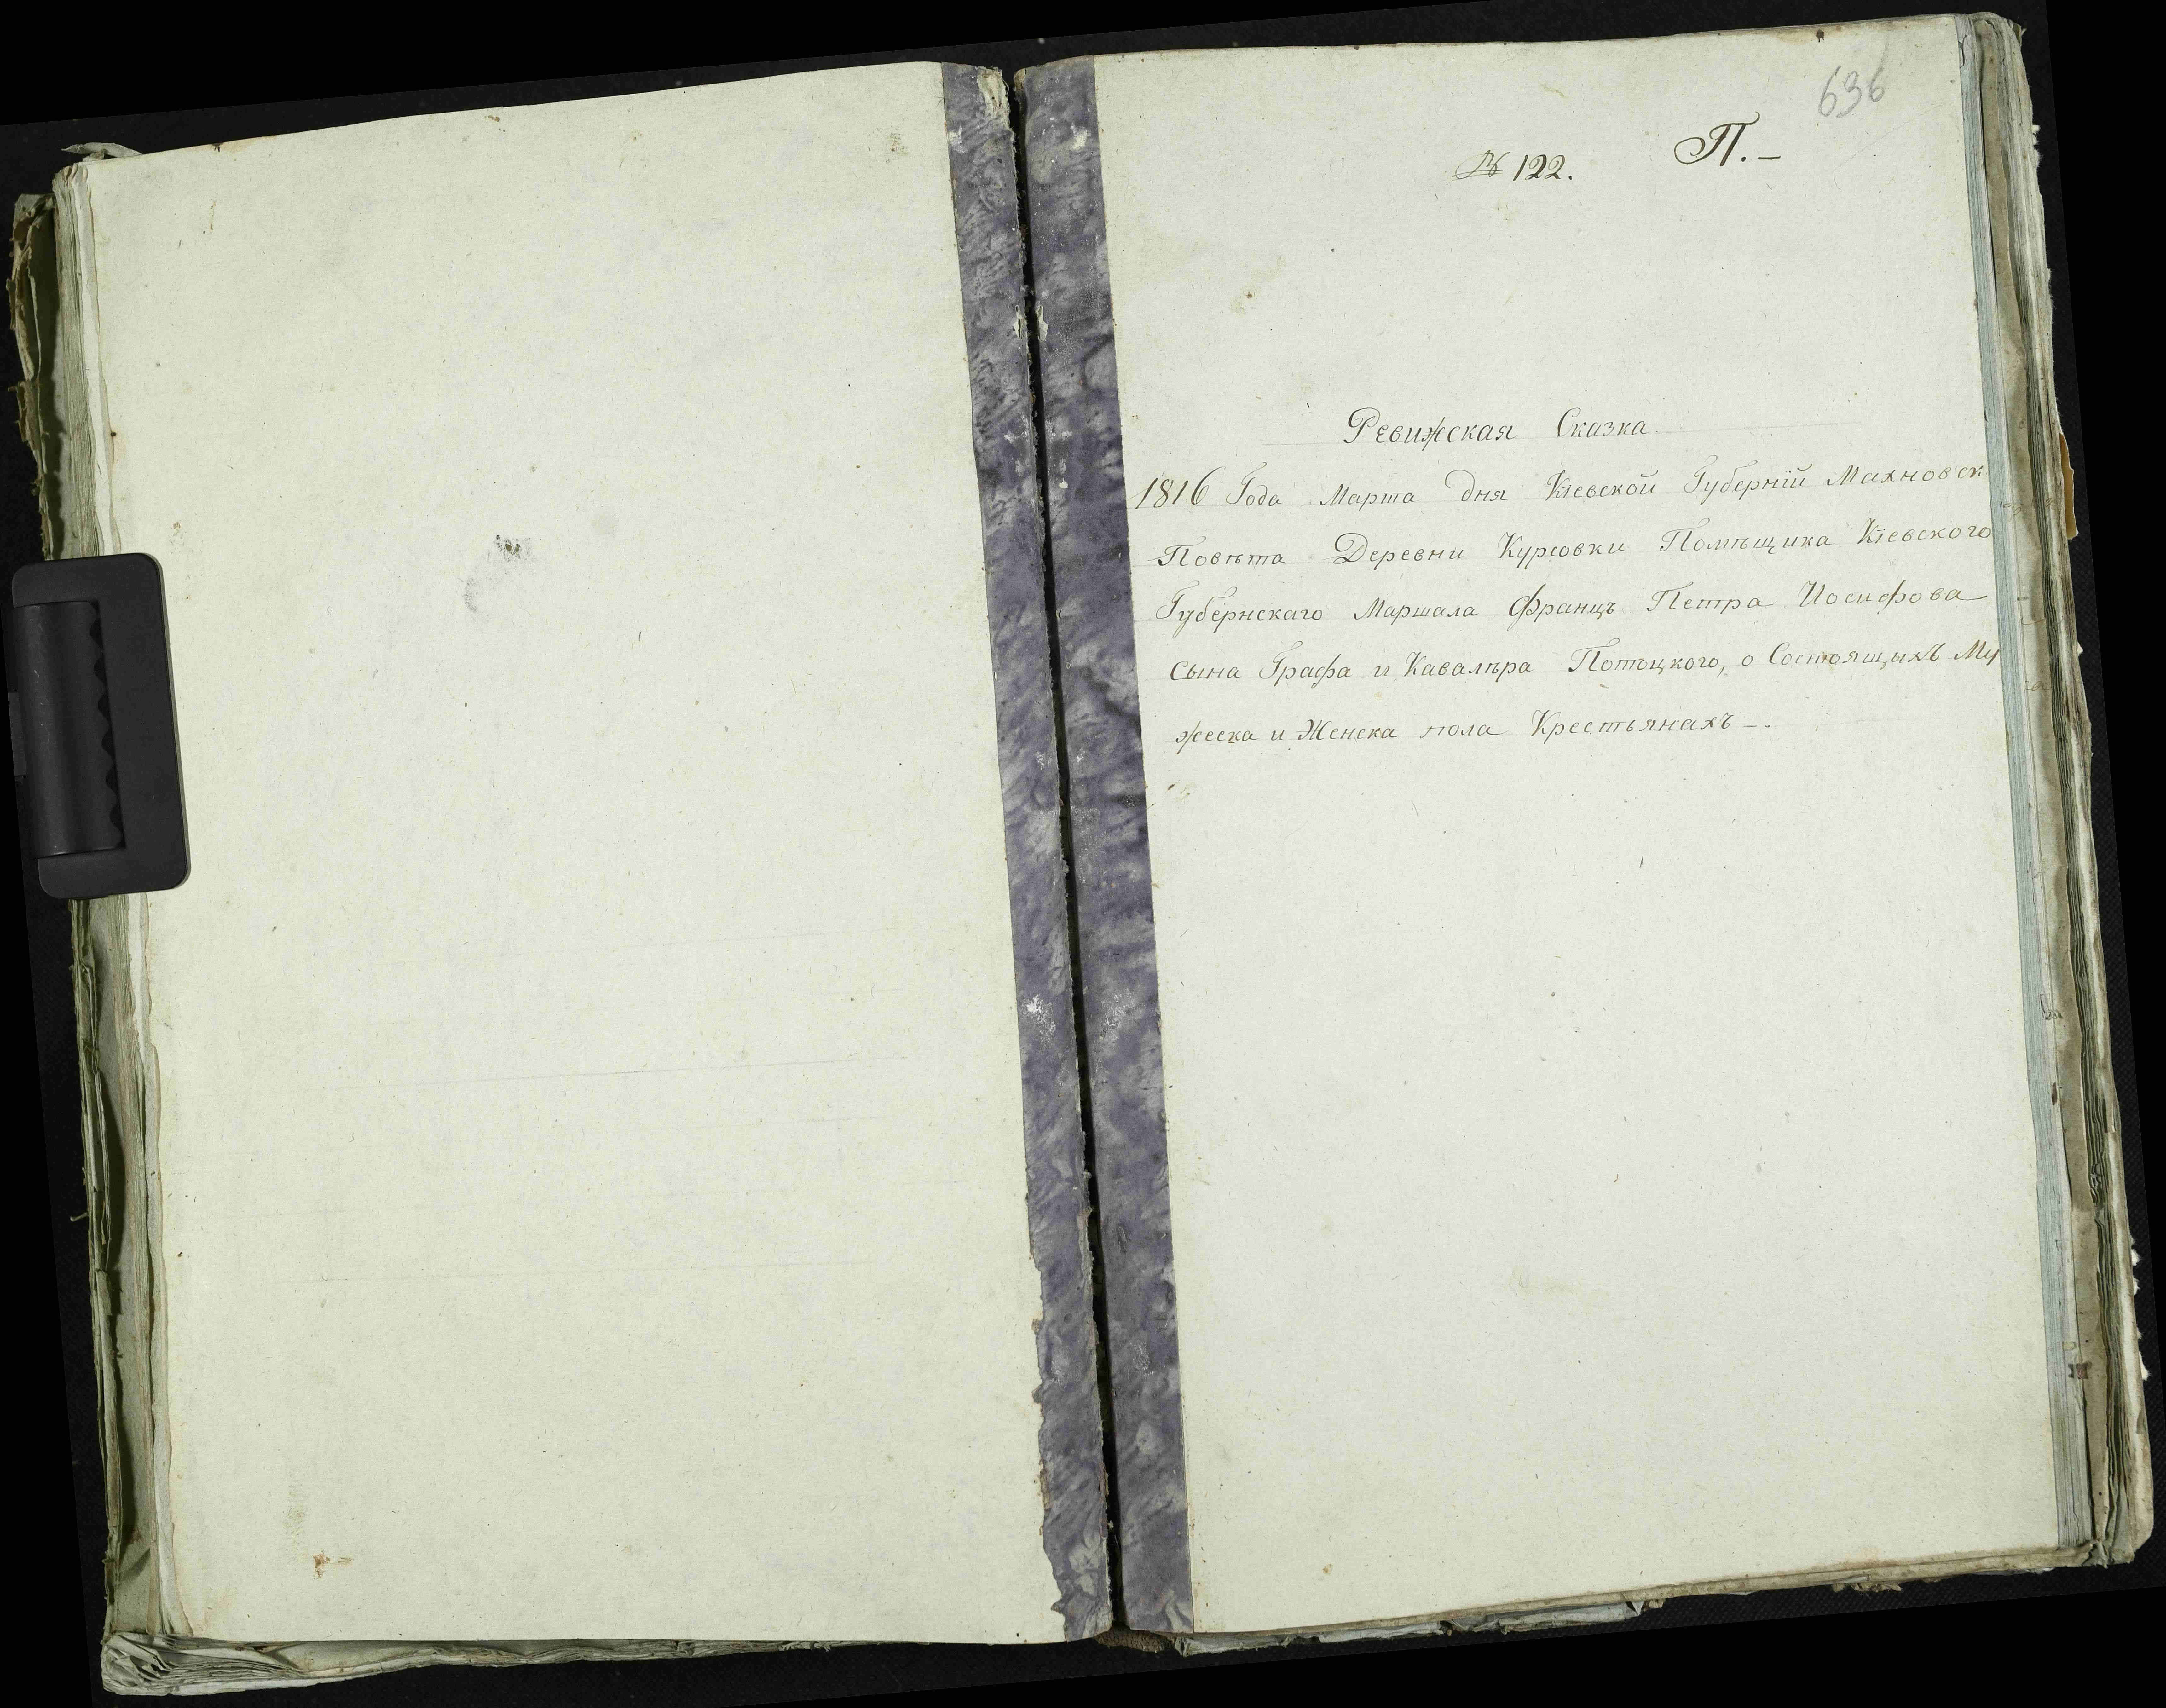 636
№ 122. П.-
Ревижская Сказка
1816 Года Марта дня Кіевской Губерніи Махновск
Повѣта Деревни Курсовки Помѣщика Кіевского
Губернскаго Маршала Францъ Петра Иосифова
сына Графа и Кавалѣра Потоцкого, о Состоящыхъ Му
жеска и Женска пола Крестьянахъ -.